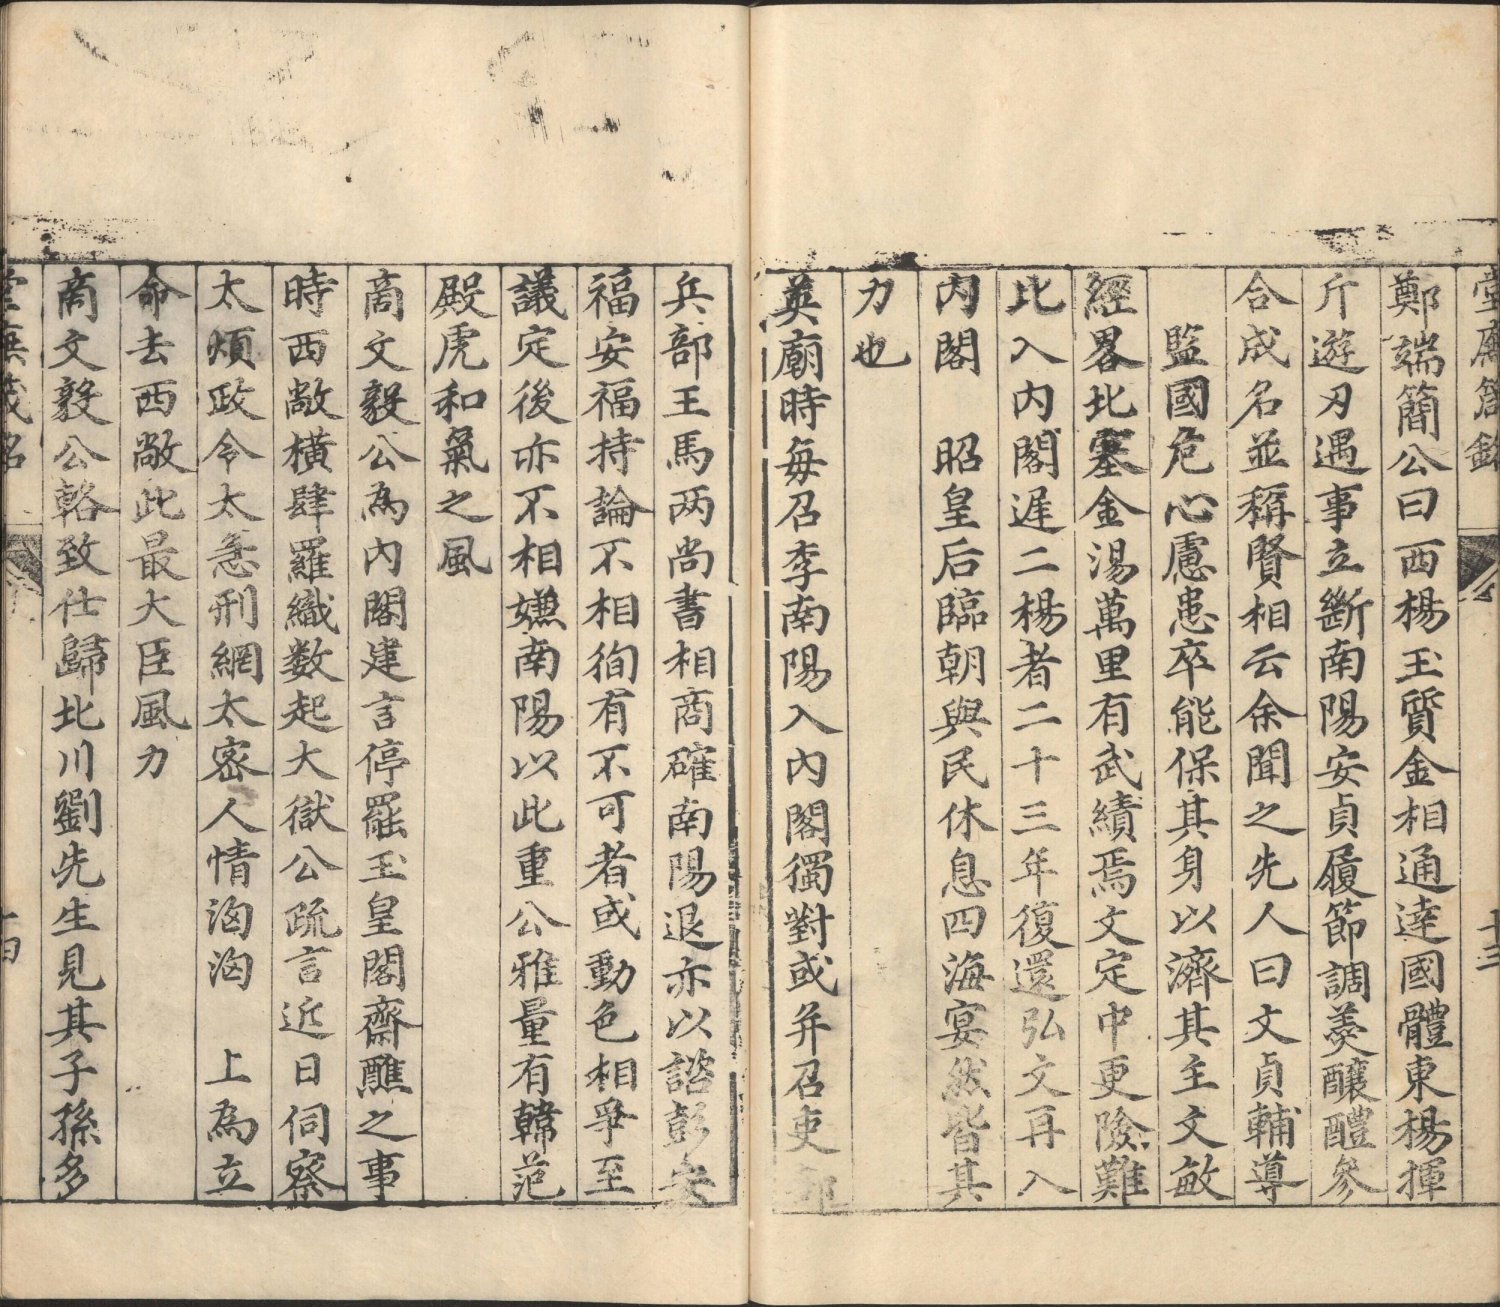 鄭端簡公曰西楊玉質金相通達國體東楊揮
斤遊刃遇事立斷南陽安貞履節調羹釀醴參
合成名並稱賢相云余聞之先人曰文貞輔導
監國危心慮患卒能保其身以濟其主文敏
經畧北塞金湯萬里有武績焉文定中更險難
比入內閣遲二楊者二十三年復還弘文再入
內閣　昭皇后臨朝與民休息四海宴然皆其
力也
英廟時每召李南陽入內閣獨對或并召吏部
兵部王馬两尚書相商確南陽退亦以諮彭安
福安福持論不相徇有不可者或動色相爭至
議定後亦不相嫌南陽以此重公雅量有韓范
殿虎和氣之風
商文毅公為內閣建言停罷玉皇閣齋醮之事
時西敞橫肆羅織数起大獄公疏言近日伺察
太煩政令太急刑網太密人情洶洶　上為立
命去西敞此最大臣風力
商文毅公輅致仕歸北川劉先生見其子孫多